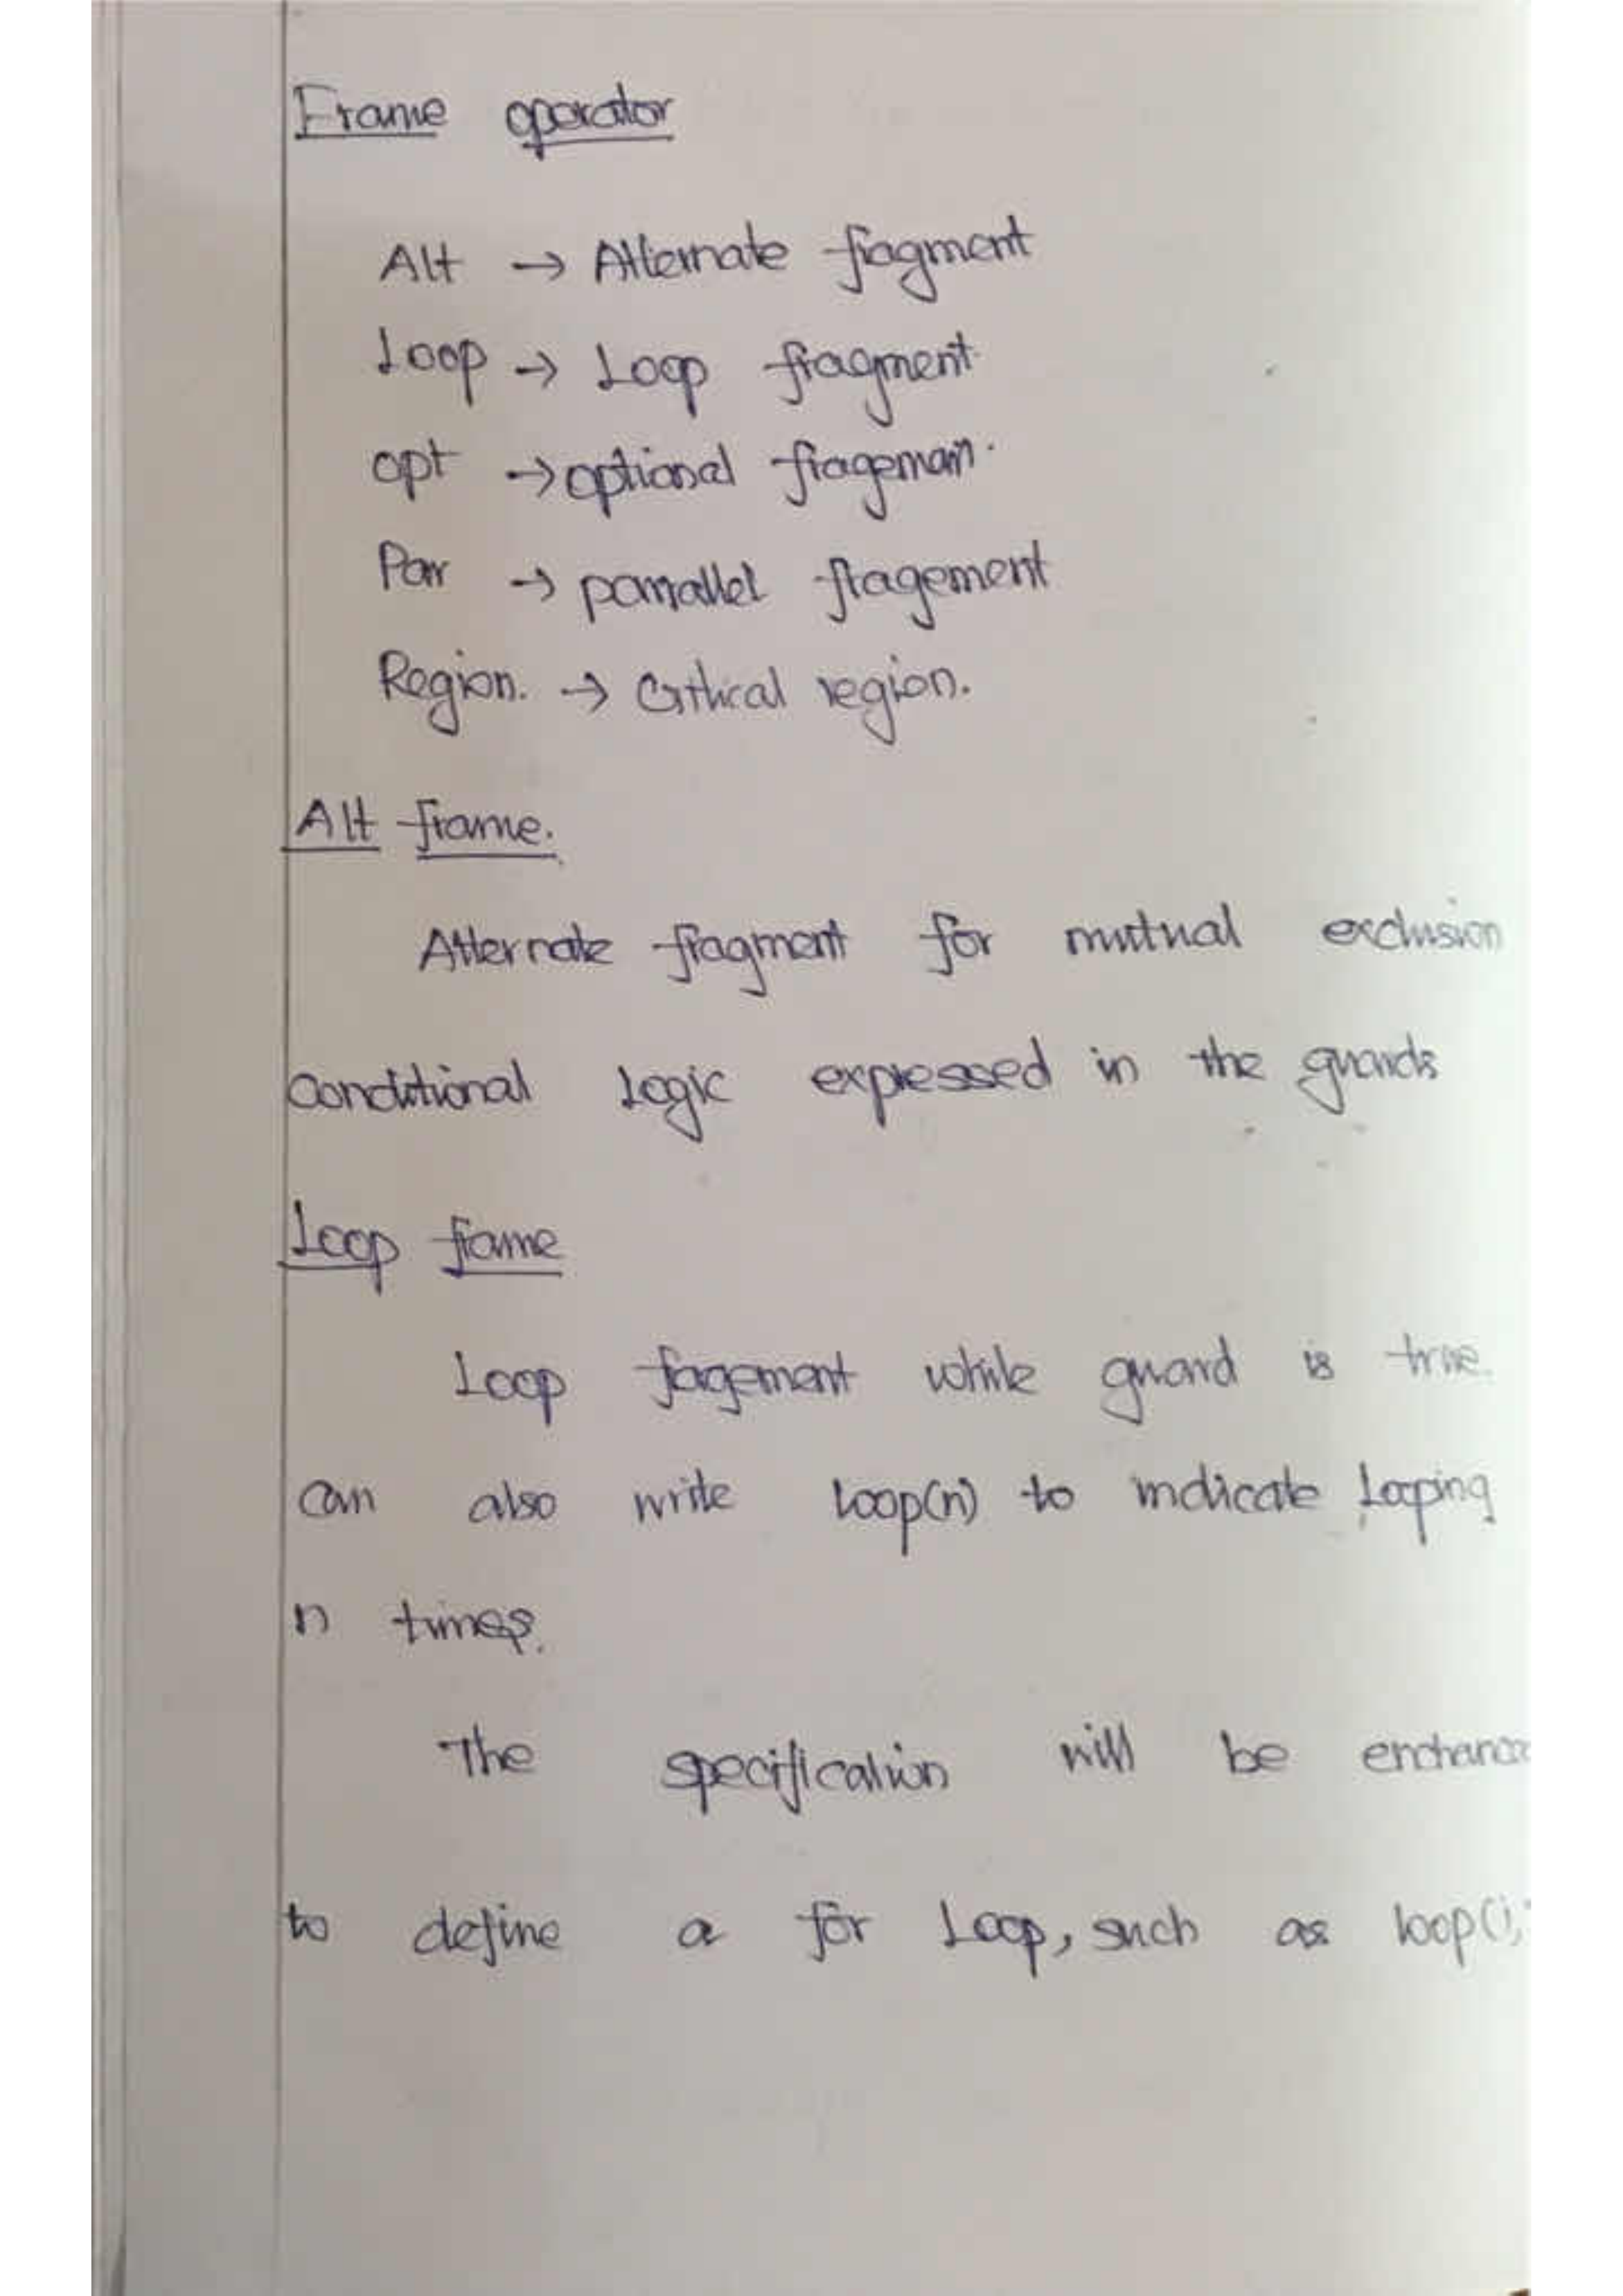 Frame operator
Alt → Alternate fragment
Loop → Loop fragment
opt → optional
Par → parrallel fragement
Region. → Critical region.
Alt frame.
Alternate fragment for mutual exclusion
conditional logic expressed in the guards
Loop frame
Loop fagement while guard is true.
can also write loop(n) to indicate Looping
n times.
The specification will be
to define a for Loop, such as loop(i,